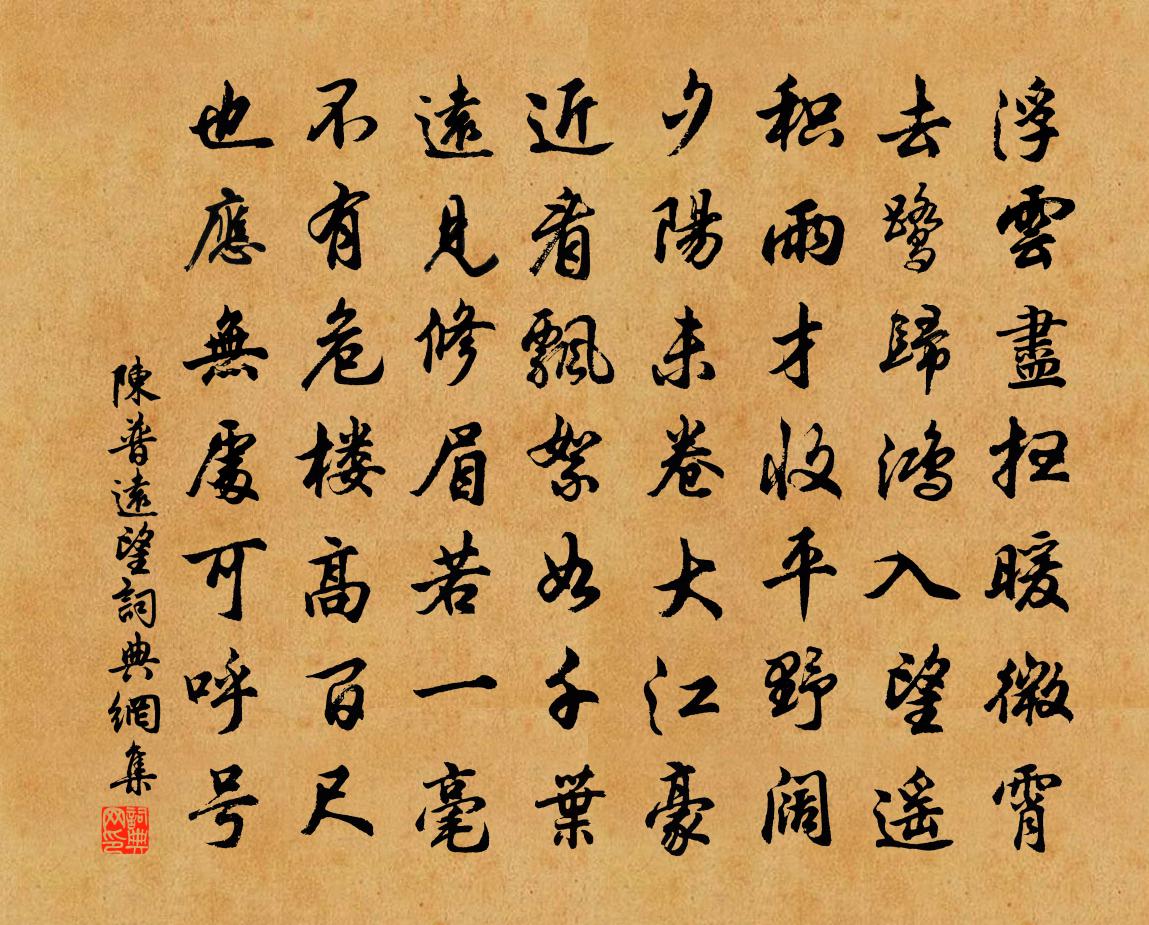 浮雲盡掃暖微霄
去鷺歸鴻入望遥
积雨才收平野阔
夕陽未卷大江豪
近看飄絮如千葉
遠見修眉若一毫
不有危楼高百尺
也應無處可呼号
陳普遠望詞典網集
詞典网印